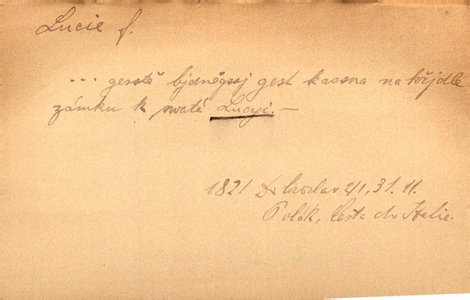 Lucie f.
... gesstě bjdněgssj gest kassna na křjdle
zámku k swaté Lucyi. —
1821 Dobroslav 2/1, 31. 11.
Polák, Cesta do Italie.